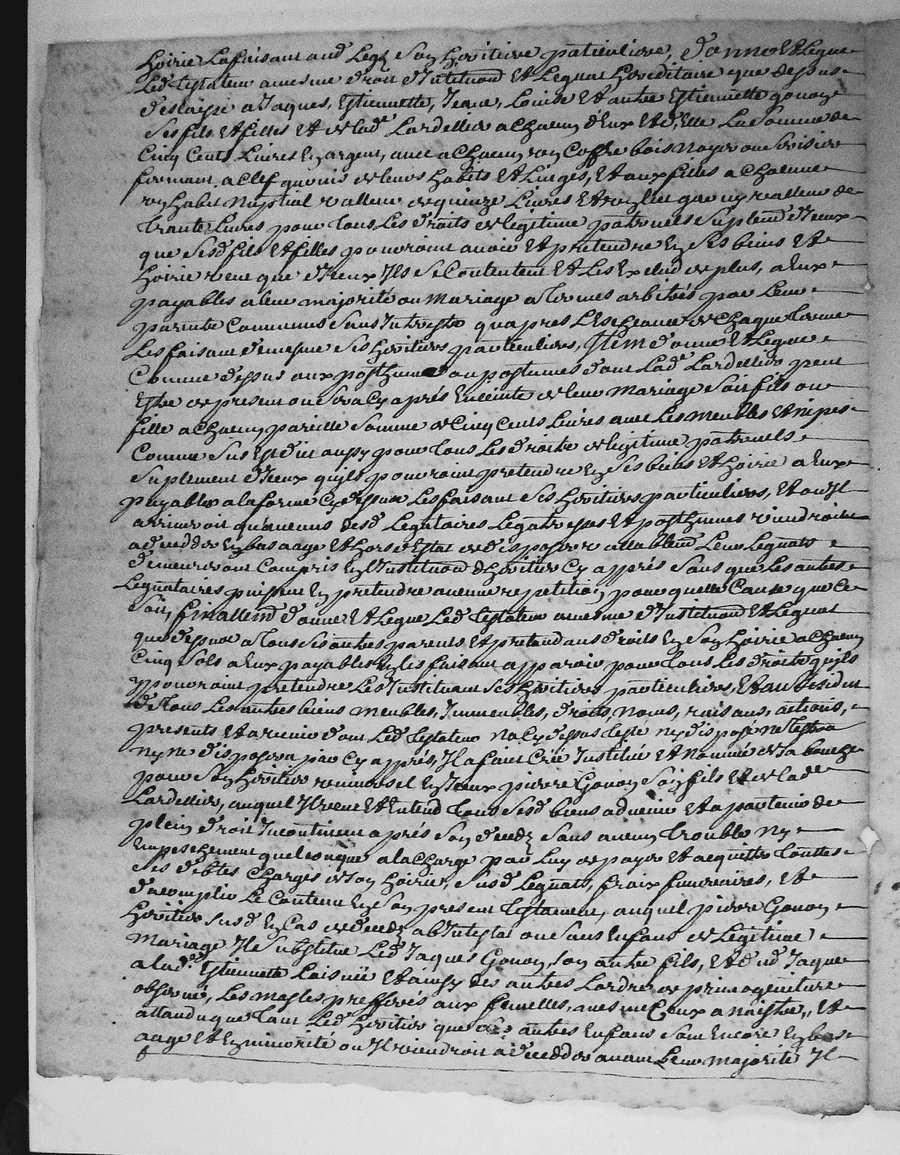 hoirie La faisant aud Legz Son heritiere particuliere, donne et Legue
Led testateur a mesme droit d'Institu͠on et Legnat hereditaire que dessus
a Jaques, Estiennette, Jeane, Louise et autre Estiennette gonon
Ses fils et filles et de lade Lardellier a chacun d'eux et d'elle La Somme de
Cinq Cents Livres en argent, avec a chacun un Coffre bois Noyer ou Serisier
fermant a Clef garnis de leurs habits et Linges, et aux filles a chacune
un habit Nuptial valleur de quinze Livres et
trante Livres pour tous Les droits de legitime paternels Suplem͠t d'Iceux
que Sesd fils et filles pouroient avoir et pretendre en Ses biens et
hoirie veut que d'Iceux Ils Se Contentent et Les Exclud de plus, a Eux
payables a leur majorité ou Mariage a termes arbitrés par Leurs
parents Communs Sans Interestz qu'apres L'Escheance de Chaque terme
Les faisant de mesme Ses heritiers particuliers, Item donne et Legue
Comme dessus aux posthume ou postumes dont Lad Lardellier peut
Estre de present ou Sera Cy après Enceinte de leur Mariage Soit fils ou
fille a chacun pareille Somme de Cinq Cents Livres avec Les meubles et nipes
Comme Sus Est dit aussy pour tous Les droits de legitime paternels
Suplement d'Iceux qu'ils pouroint pretendre en Ses biens et hoirie a Eux
payables a la forme Cy dessus Les faisant Ses heritiers particuliers, et ou Il
arriveroit qu'aucuns desd Legataires Legatresses et posthumes viendroient
a decedder en bas aage et hors d'Estat de disposer vallablem͠t Leurs Legnats
demeureront Compris en L'Institu͠on d'heritier Cy apprés Sans que Les autres
Legataires puissent En pretendre aucune repetition pour quelle Cause que Ce
Soit, finallem͠t donne et Legue Led testateur a mesme d'Institu͠on et Legnat
que dessus a tous Ses autres parents et pretendans droits En Son hoirie a Chacun
Cinq Sols a Eux payables En Les faisant apparoir pour tous Les droits qu'ils
y pouroint pretendre Les Instituant Ses heritiers particuliers, et au residu
de tous Les autres biens meubles, Immeubles, droits, Noms, raisons, actions,
presents et a venir dont Led testateur n'a Cy dessus testé ny disposé ne testera
ny ne disposera par Cy apprés, Il a fait Créé Institué et Nommé de Sa bouche
pour Son heritier universel en Iceux pierre Gonon Son fils et de lade
Lardellier, auquel Il veut et Entend tous Sesd biens advenir et appartenir de
plein droit Incontinent aprés Son decedz Sans aucun trouble Ny
Empeschement quelconque a la Charge par Luy de payer et acquitter touttes
Ses debtes Charges de Son hoirie, Susd Legnats, fraix funeraires, et
d'acomplir Le Contenu En Son present testament, auquel pierre Gonon
heritier Susd En Cas de decedz abIntestat ou Sans Enfans de Legitime
Mariage Il Substitue Led Jaques Gonon Son autre fils, et dud Jaque
a lade Estiennette L'aisnée et ainsy des autres L'ordre de primogeniture
observé, Les masles prefferés aux femelles, mesme Ceux a naistre, et
attandu que tant Led heritier que Ses autres Enfans Sont Encore En bas
aage et En minorité ou Il viendroit a decedder avant Leur majorité Il